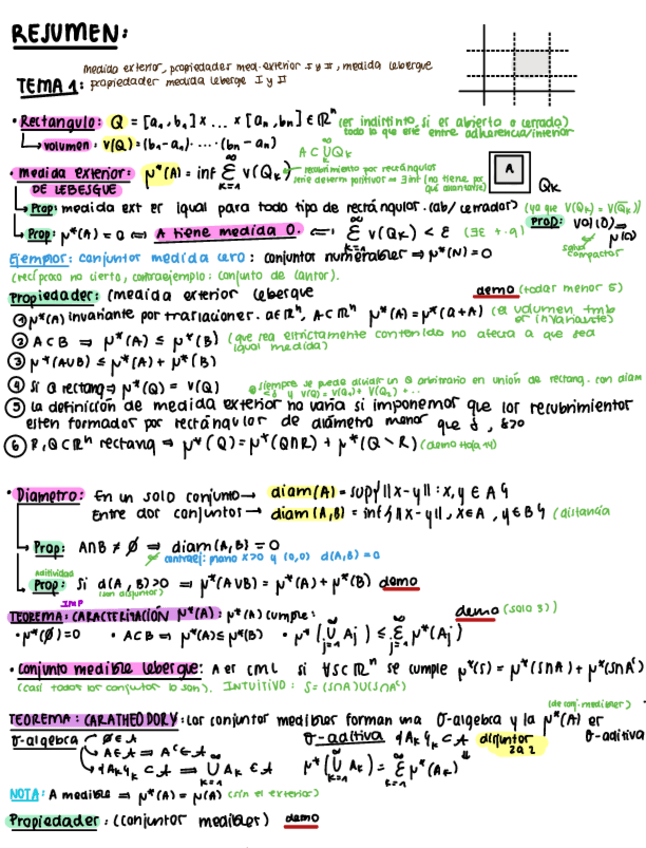 RESUMEN:
medida exterior, propiedades med. exterior I y II, medida lebesgue
TEMA 1: propiedades medida lebesge I y II
• Rectangulo: Q = [a₁,b₁] x ... x [aₙ,bₙ] ∈ ℝⁿ (es indistinto si es abierto o cerrado)
todo lo que esté entre adherencia/interior
↳ volumen: V(Q) = (b₁-a₁)· ... ·(bₙ-aₙ)
A ⊂ ∪Qₖ
• medida exterior: μ*(A) = inf Σ V(Qₖ) recubrimiento por rectángulos
DE LEBESGUE
A
Qₖ
↳ Prop: medida ext es igual para todo tipo de rectángulos. (ab/cerrados) (ya que V(Qₖ) = V(Q̄ₖ))
↳ Prop: μ*(A) = 0 ⟺ A tiene medida 0. ⟺ Σ V(Qₖ) < ε (∃ε t.q)
Prop: vol(Ω)=
μ(Ω)
solo
compactos
Ejemplos: conjuntos medida cero: conjuntos numerables ⇒ μ*(N) = 0
(recíproco no cierto, contraejemplo: conjunto de Cantor).
Propiedades: (medida exterior lebesgue demo (todas menos 5)
① μ*(A) invariante por traslaciones. a∈ℝⁿ, A⊂ℝⁿ μ*(A) = μ*(a+A) (el volumen tmb
es invariante)
② A ⊂ B ⇒ μ*(A) ≤ μ*(B) (que sea estrictamente contenido no afecta a que sea
igual medida)
③ μ*(A∪B) ≤ μ*(A) + μ*(B)
④ Si Q rectang ⇒ μ*(Q) = V(Q) siempre se puede dividir un Q arbitrario en unión de rectang. con diam
<δ y V(Q) = V(Q₁) + V(Q₂) + ..
⑤ La definición de medida exterior no varía si imponemos que los recubrimientos
estén formados por rectángulos de diámetro menor que δ, δ>0
⑥ R, Q ⊂ ℝⁿ rectang ⇒ μ*(Q) = μ*(Q∩R) + μ*(Q∖R) (demo Hoja 1)
• Diametro: En un solo conjunto → diam(A) = sup{‖x-y‖ : x,y ∈ A}
Entre dos conjuntos → diam(A,B) = inf{‖x-y‖, x∈A, y∈B} (distancia
↳ Prop: A∩B ≠ ∅ ⇒ diam(A,B) = 0
contraej: plano x>0 y (0,0) d(A,B)=0
Aditividad
↳ Prop: Si d(A,B)>0 ⇒ μ*(A∪B) = μ*(A) + μ*(B) demo
(son disjuntos)
IMP
TEOREMA: CARACTERIZACIÓN μ*(A): μ*(A) cumple: demo (solo 3)
• μ*(∅)=0 • A⊂B ⇒ μ*(A) ≤ μ*(B) • μ*(∪ Aⱼ) ≤ Σ μ*(Aⱼ)
• Conjunto medible lebesgue: A es CML si ∀S⊂ℝⁿ se cumple μ*(S) = μ*(S∩A) + μ*(S∩Aᶜ)
(casi todos los conjuntos lo son). INTUITIVO: S = (S∩A)∪(S∩Aᶜ)
(de conj. medibles)
TEOREMA: CARATHEODORY: Los conjuntos medibles forman una σ-algebra y la μ*(A) es
σ-aditiva
σ-algebra ∅∈A σ-aditiva {Aₖ}ₖ ⊂ A disjuntos
2 a 2
A∈A ⇒ Aᶜ∈A
{Aₖ}ₖ ⊂ A ⇒ ∪ Aₖ ∈ A μ*(∪ Aₖ) = Σ μ*(Aₖ)
NOTA: A medible ⇒ μ*(A) = μ(A) (sin el exterior)
Propiedades: (conjuntos medibles) demo